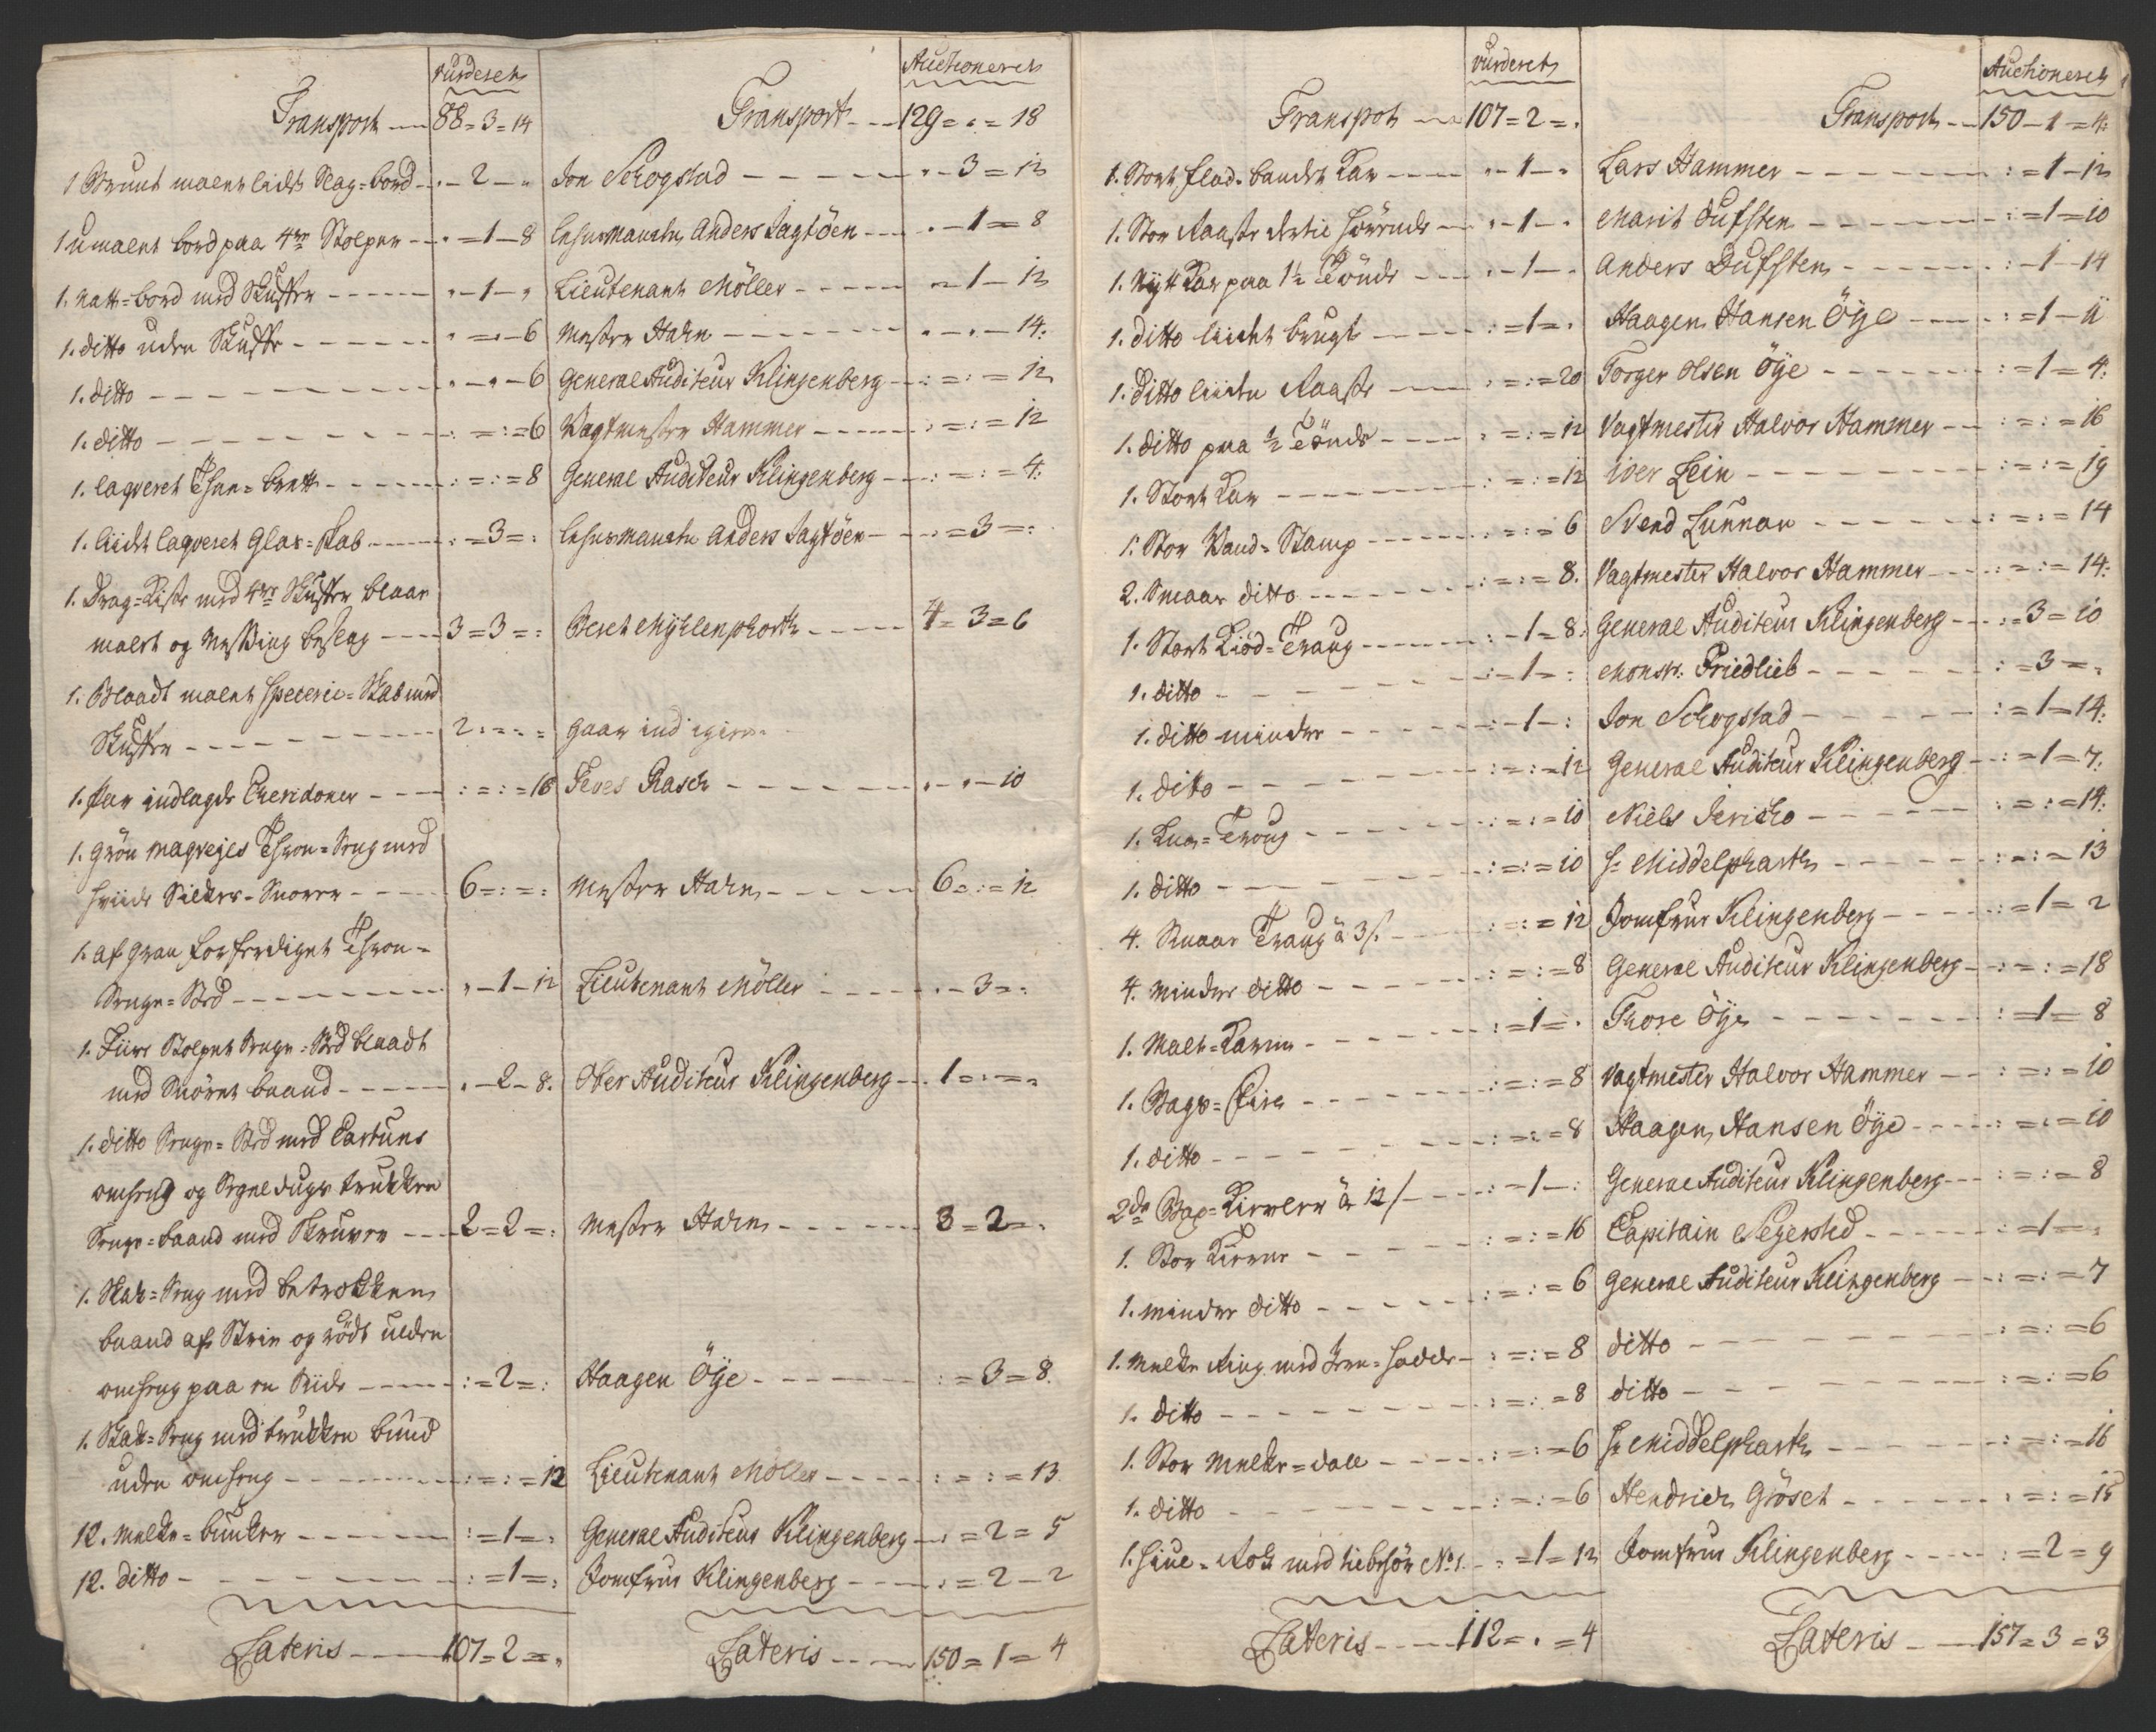 vurderet Auctioneret
Transport --- 88 = 3 = 14 Transport --- 129 = . = 18
1 Bruut malet lidet Slag=bord --- . - 2 - . Jon Schogstad --- . - 3 = 12
1 umalet bord paa 4re Stolper --- . = 1 - 8 Lehnsmanden Anders Sagtöen --- . - 1 = 8
1. natt=bord med Skuffer --- . - 1 - . Lieutenant Möller --- . - 1 - 12
1. ditto uden Skuffe --- . = . - 6 Mester Hahn --- . - . - 14.
1. ditto --- . - . - 6 General Auditeur Klingenberg --- : = : = 12
1. ditto --- : = : = 6 Vagtmester Hammer --- : = : = 12
1. laqveret Thee=brett --- : = : = 8 General Auditeur Klingenberg --- : = : = 4.
1. lidet laqveret Glas=skab --- : = 3 = : Lehnsmanden Anders Sagtöen --- : = 3 = :
1. Drag=Kiste med 4re Skuffer blaae
malet og Messing beslag --- 3 = 3 = : Beret Mÿhlenphort --- 4 = 3 = 6
1. Blaadt malet Specerie=Skab med
Skuffer --- 2 = : = : gaar ind igien.
1. par indlagde Cheridoner --- : = : = 16 Jens Rasch --- . - . - 10
1. grön magrejes Thron=Seng med
hviide Silkes=Snorer --- 6 = : = : Mester Hahn --- 6 = : = 12
1. af gran forferdiget Thron=
Senge=Sted --- . - 1 - 12 Lieutenant Möller --- . - 3 = :
1. Fiire Stolpet Senge=Sted blaadt
med Snöret baand --- . - 2 - 8. Ober Auditeur Klingenberg --- 1 = : = :
1. ditto Senge=Sted med Cartuns
omheng og Segeldugs trukken
Senge=baand med Skruver --- 2 = 2 = : Mester Hahn --- 3 = 2 = .
1. Slab=Seng med betrokken
baand af Strie og rödt ulden
omheng paa en Siide --- : = 2 = : Haagen Öÿe --- : = 3 = 8.
1. Slab=Seng med trukken bund
uden omheng --- : = : = 12 Lieutenant Möller --- : = : = 13
12. Melke=bunker --- : = 1 = . General Auditeur Klingenberg --- : = 2 = 5
12. ditto --- : = 1 = . Jomfrue Klingenberg --- : = 2 - 2
Lateris --- 107 = 2 = . Lateris --- 150 = 1 = 4
vurderet Auctioneret
Transpot --- 107 = 2 = . Transport --- 150 - 1 = 4.
1. Stort flad=baandet Kar --- . - 1 - . Lars Hammer --- : = 1 - 12
1. Stor Raaste --- . - 1 - . Marit Dufsten --- : = 1 = 10
1. Nÿt Kar paa 1½ Tönde --- . - 1 - . Anders Dufsten --- : - 1 - 14
1. ditto lidet brugt --- : = 1 = . Haagen Hansen Öÿe --- : = 1 - 11
1. Ditto liiden Raaste --- : = : = 20 Torger Olsen Öÿe --- : = 1 = 4.
1. ditto paa ½ Tönde --- : = : = 12 Vagtmester Halvor Hammer --- : = : = 16
1. Stort Kar --- : = : = 12 Iver Lein --- : = : = 19
1. Stor Vand=Stamp --- : = : = 6 Svend Lunnan --- : = : = 14
2. Smaae ditto --- : = : = 8. Vagtmester Halvor Hammer --- : = : = 14.
1. Stort Kiöd=Traug --- : - 1 = 8. General Auditeur Klingenberg --- : = 3 = 10
1. ditto --- : - 1 = : Monsr: Friedlieb --- : = 3 = .
1. ditto minder --- : - 1 - : Jon Schogstad --- : = 1 = 14.
1. ditto --- : = : = 12 General Auditeur Klingenberg --- : = 1 = 7.
1. Knae=Troug --- : = : = 10 Niels Jericho --- : = : = 14.
1. ditto --- : = : = 10 Hr Middelphart --- : = : = 13
4. Smaae Traug à 3 s. --- : = : = 12 Jomfrue Klingenberg --- : = 1 = 2
4. Minder ditto --- : = : = 8 General Auditeur Klingenberg --- : = : = 18
1. Malt=Karm --- : = 1 = . Thore Öÿe --- : = 1 = 8
1. Bage=Fiæl --- : = : = 8 Vagtmester Halvor Hammer --- : = : = 10
1. ditto --- : = : = 8 Haagen Hansen Öÿe --- : = : = 10
2de Bag=Kievler à 12 s --- : - 1 - : General Auditeur Klingenberg --- : = : = 8
1. Stor Kierne --- : = : = 16 Capitain Segersted --- : = 1 = .
1. minder ditto --- : = : = 6 General Auditeur Klingenberg --- : = : = 7
1. Melke Ring med Jern=hadde --- : = : = 8 ditto --- : = : = 6
1. ditto --- : = : = 8 ditto --- : = : = 6
1. Stor Melke=dall --- : = : = 6 Hr Middelphart --- : = : = 16
1. ditto --- : = : = 6 Hendrich Gröset --- : = : = 15
1. Hiue=Rok med tilbehör No 1. --- : = 1 = 12 Jomfrue Klingenberg --- : = 2 = 9
Lateris --- 112 = . = 4 Lateris --- 157 = 3 = 3